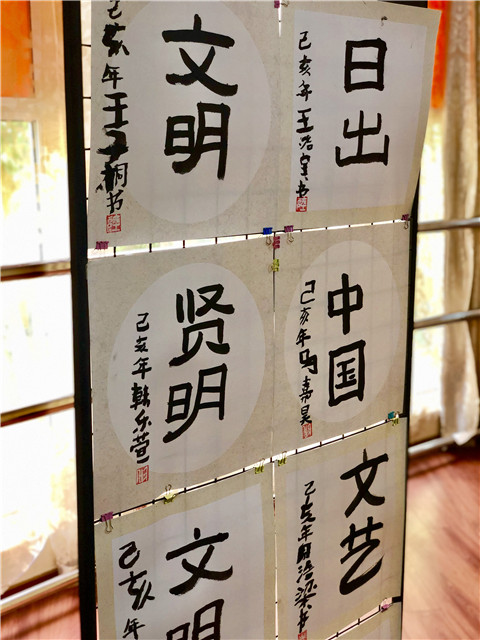 文明
己亥年王子桐书
日出
己亥年王浩宇书
贤明
己亥年韩乐萱
中国
己亥年马嘉昊
文明
己亥年
文艺
己亥年周浩梁书